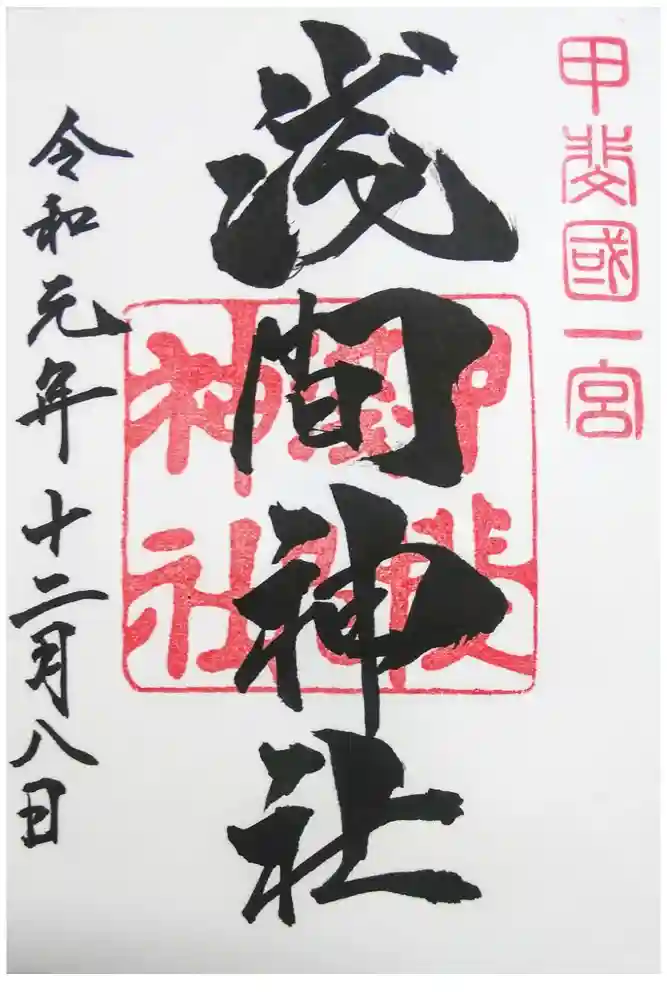 甲斐國一宮
浅間神社
令和元年十二月八日